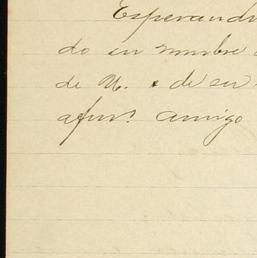 Esperand
do su nombre
de U. de su
afmo. amigo